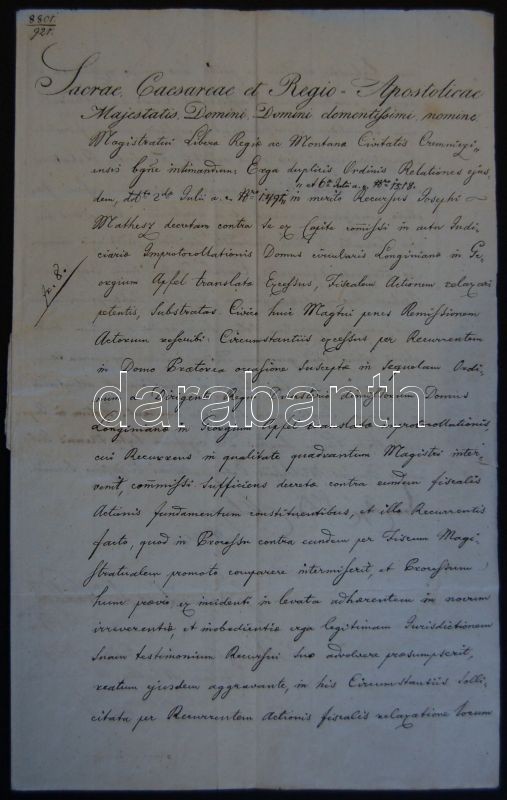 8801.
921.
Sacrae Caesareae et Regio-Apostolicae
Majestatis Domini, Domini clementissimi, nomine
Magistratui Liberae Regiae ac Montanae Civitatis Cremniczi
ensis intimandum: Erga duplicis Ordinis Relationes ejus
" et 6a Julii a. c. Nro 1518.
dem, ddto 2da Julii a. c. Nro 1491, in merito Recursus Josephi
Mathesz decretam contra se ex Capite commissi in actu Judi
ciariae Improtocollationis Domus circularis Longinianae in Ge
N. 8.
orgium Apfel translatae Excessus, Fiscalem Actionem relaxari
petentis, substratas. Civico huic Magtui penes Remissionem
Actorum rescribi: Circumstantiis excessus per Recurrentem
in Domo Praetorea occasione susceptae in sequelam Ordi
num a Dirigente Regio Consiliario demissorum Domus
darabanth
Longinianae in Georgium Apfel translatae Improtocollationis,
cui Recurrens in qualitate quadvantum Magistri inter
venit, commissi sufficiens decretae contra eundem fiscalis
Actionis fundamentum constituentibus, et illo Recurrentis
facto, quod in Processu contra eundem per Fiscum Magi
stratualem promoto comparere intermiserit, et Processum
hunc praevio ex incidenti in levata adhaerentem in novum
irreverentiae, et inobedientiae erga legitimam Jurisdictionem
Suam testimonium Recursui suo advolvere praesumpserit,
reatum ejusdem aggravante, in his Circumstantiis solli
citata per Recurrentem Actionis fiscalis relaxatione locum